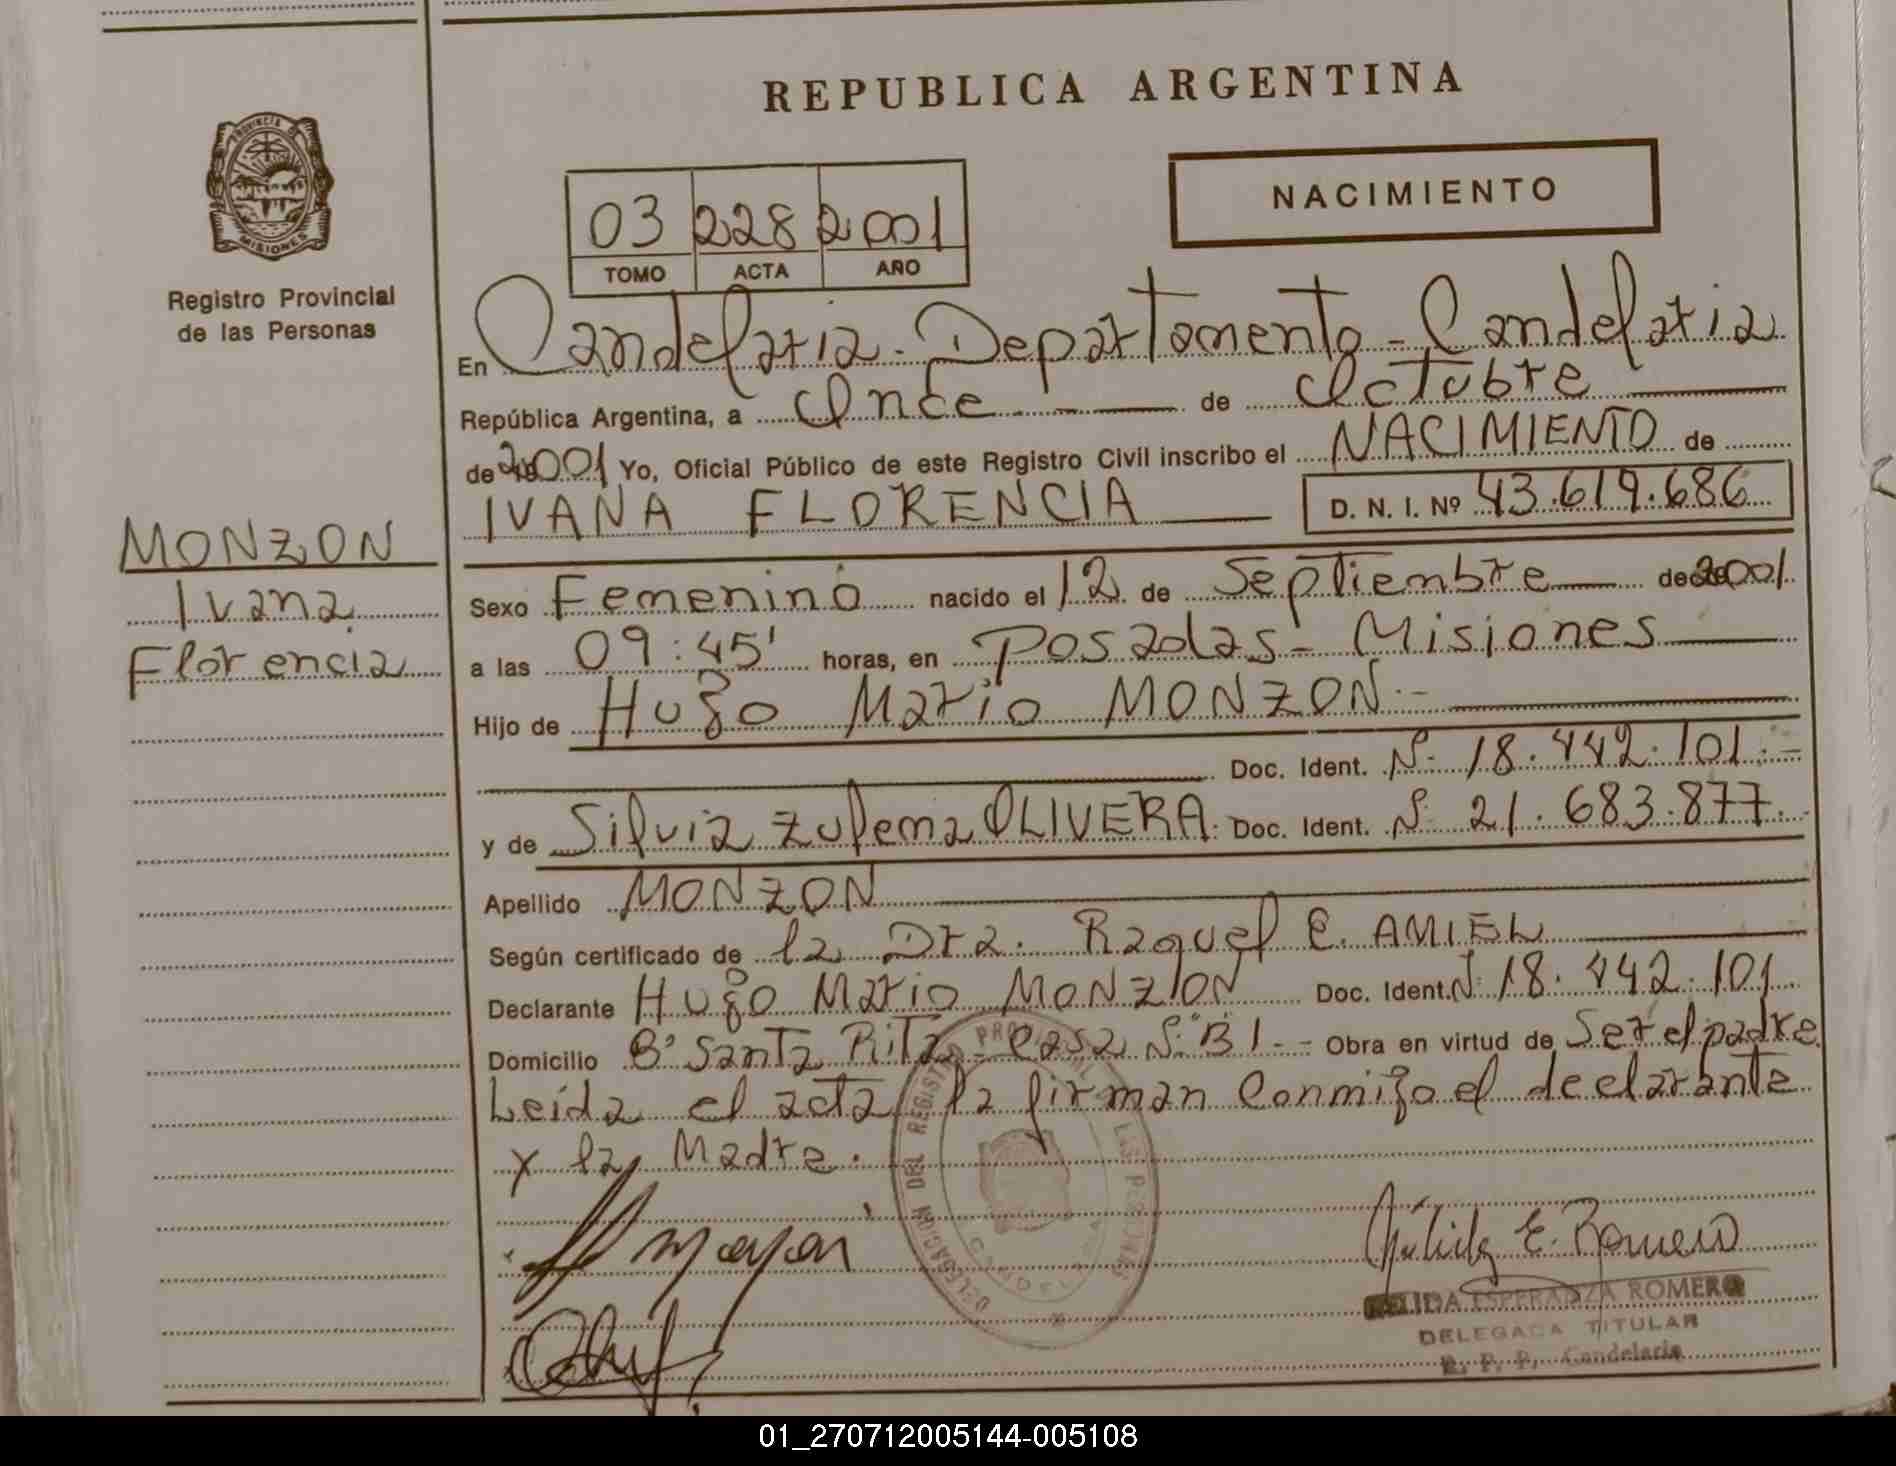 REPUBLICA ARGENTINA
PROVINCIA DE
MISIONES
Registro Provincial
de las Personas
NACIMIENTO
03 228 2001
TOMO ACTA AÑO
En Candelaria - Departamento - Candelaria
República Argentina, a Once de Octubre
de 2001 Yo, Oficial Público de este Registro Civil inscribo el NACIMIENTO de
IVANA FLORENCIA D. N. I. Nº 43.619.686
MONZON
Ivana
Florencia
Sexo Femenino nacido el 12 de Septiembre de 2001
a las 09:45' horas, en Posadas - Misiones
Hijo de Hugo Mario MONZON.-
Doc. Ident. Nº 18.442.101.-
y de Silvia Zulema OLIVERA. Doc. Ident. Nº 21.683.877.-
Apellido MONZON
Según certificado de la Dra. Raquel E. AMIEL
Declarante Hugo Mario MONZON Doc. Ident. Nº 18.442.101
Domicilio Bº Santa Rita - Casa Nº B1.- Obra en virtud de Ser el padre
Leída el acta la firman conmigo el declarante
y la Madre.
DELEGACION DEL REGISTRO PROVINCIAL DE LAS PERSONAS
CANDELARIA
Nélida E. Romero
NELIDA ESPERANZA ROMERO
DELEGADA TITULAR
R. P. P. Candelaria
01_270712005144-005108